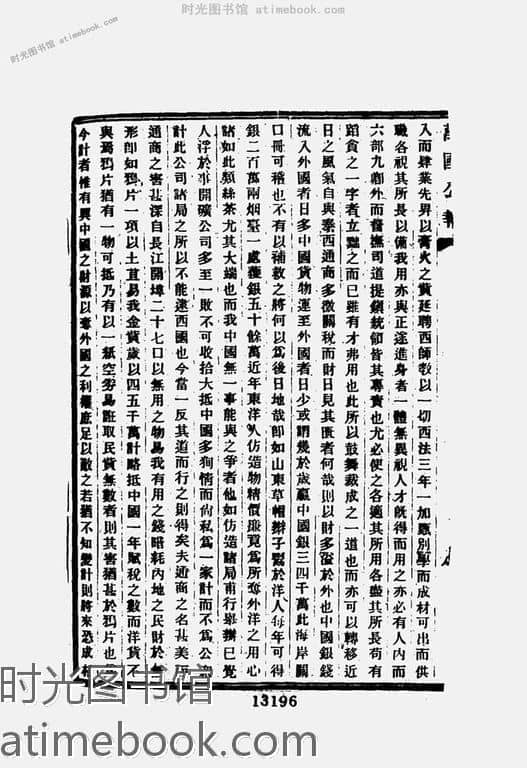 时光图书馆 atimebook.com
时光图书馆
atimebook.com
萬國公報
入而肄業先昇以膏火之資延聘西師敎以一切西法三年一加甄別學而成材可出而供
職各視其所長以備我用亦與正途進身者一體無異視人才旣得而用之亦必有人內而
六部九卿外而督撫司道提鎭統領皆其專責也尤必使之各適其所用各盡其所長苟有
蹈貪之一字者立黜之而已雖有才弗用也此所以鼓舞裁成之一道也而亦可以轉移近
日之風氣自與泰西通商多徵關稅而財日見其匱者何哉則以財多溢於外也中國銀錢
流入外國者日多中國貨物運至外國者日少或謂幾於歲贏中國銀三四千萬此海岸關
口冊可稽也不有以補救之將何以爲後日地哉卽如山東草帽辮子鬻於洋人每年可得
銀二百萬兩烟臺一處獲銀五十餘萬近年東洋人仿造物精價廉竟爲所奪外洋之用心
諸如此類絲茶尤其大端也而我中國無一事能與之爭者他如仿造諸局甫行舉辦已覺
人浮於事開礦公司多至一敗不可收拾大抵中國多狥情而尙私爲一家計而不爲公
計此公司諸局之所以不能逮西國也今當一反其道而行之則得矣夫通商之名甚美
通商之害甚深自長江開埠二十七口以無用之物易我有用之錢暗耗內地之民財於無
形卽如鴉片一項以土苴易我金貲歲以四五千萬計略抵中國一年賦稅之數而洋貨不
與焉鴉片猶有一物可抵乃有以一紙空券易誆取民貲無數者則其害猶甚於鴉片也
今計者惟有興中國之財源以奪外國之利權庶足以敵之若猶不知變計則將來恐成
13196
时光图书馆
atimebook.com